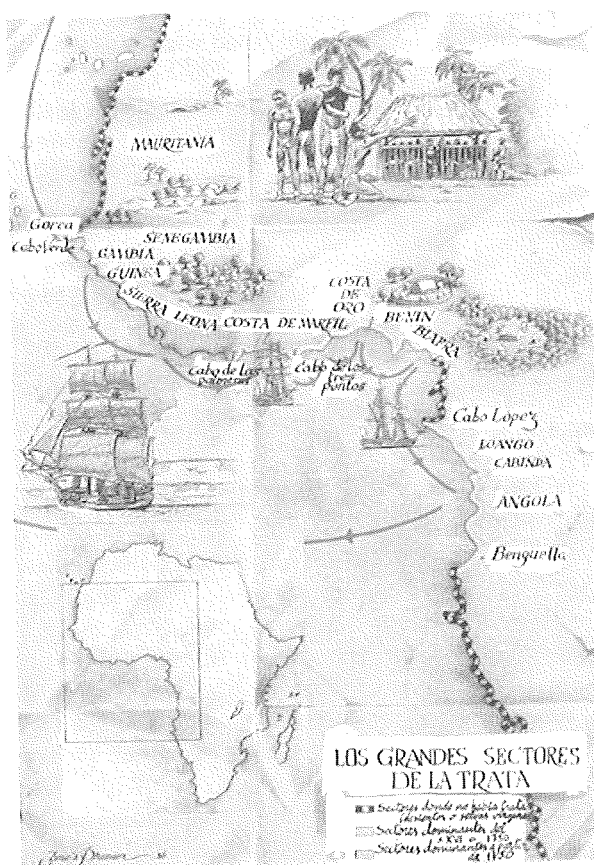 MAURITANIA
Gorea
Cabo Verde
SENEGAMBIA
GAMBIA
GUINEA
SIERRA LEONA
COSTA DE MARFIL
COSTA
DE
ORO
BENIN
BIAFRA
Cabo de las
palmeras
Cabo de los
tres
puntos
Cabo López
LOANGO
CABINDA
ANGOLA
Benguella
LOS GRANDES SECTORES
DE LA TRATA
Sectores donde no había trata
(desiertos o selvas vírgenes)
Sectores dominantes del
s. XVI a 1750
Sectores dominantes a partir
de 1750